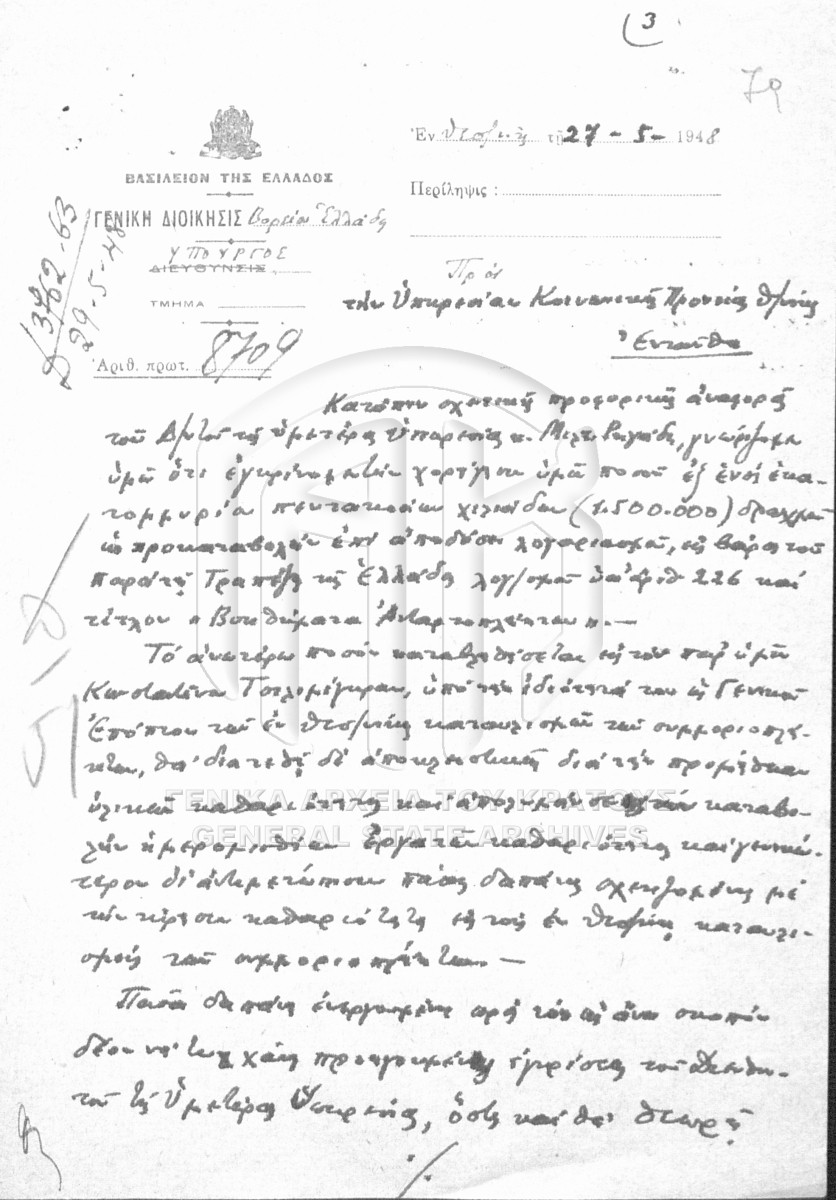 3
79
Ἐν Θεσ/κῃ τῇ 27-5-1948
ΒΑΣΙΛΕΙΟΝ ΤΗΣ ΕΛΛΑΔΟΣ
Περίληψις :
ΓΕΝΙΚΗ ΔΙΟΙΚΗΣΙΣ Βορείου Ἑλλάδος
ΥΠΟΥΡΓΟΣ
ΔΙΕΥΘΥΝΣΙΣ
ΤΜΗΜΑ
Ἀριθ. πρωτ. 8709
29-5-48
Πρὸς
τὴν Ὑπηρεσίαν Κοινωνικῆς Προνοίας Θ/νίκης
Ἐνταῦθα
Κατόπιν σχετικῆς προφορικῆς ἀναφορᾶς
τοῦ Δ/ντοῦ τῆς ὑμετέρας Ὑπηρεσίας κ. Μιλτ. γνωρίζομεν
ὑμῖν ὅτι ἐγκρίνομεν χορήγησιν ὑμῖν ποσοῦ ἐξ ἑνὸς ἑκα-
τομμυρίου πεντακοσίων χιλιάδων (1.500.000) δραχμῶν
ὡς προκαταβολὴν ἐπὶ ἀποδόσει λογαριασμοῦ, εἰς βάρος τοῦ
παρὰ τῇ Τραπέζῃ τῆς Ἑλλάδος λογ/σμοῦ ὑπ' ἀριθ 226 καὶ
τίτλον "Βοηθήματα Ἀνταρτοπλήκτων".—
Τὸ ἀνωτέρω ποσὸν καταβληθήσεται εἰς τὸν παρ' ὑμῖν
Κωνσταντῖνον ὑπὸ τὴν ἰδιότητά του ὡς Γενικοῦ
Ἐπόπτου τῶν ἐν Θεσ/νίκῃ καταυλισμῶν τῶν συμμοριοπλή-
κτων, θὰ διατεθῇ δὲ ἀποκλειστικῶς διὰ τὴν προμήθειαν
ὑλικῶν καθαριότητος καὶ ἀπολυμάνσεως τὴν καταβο-
λὴν ἡμερομισθίων ἐργατῶν καθαριότητος καὶ γενικώ-
τερον δι' ἀντιμετώπισιν πάσης δαπάνης σχετιζομένης μὲ
τὴν τήρησιν καθαριότητος εἰς τοὺς ἐν Θεσ/νίκῃ καταυλι-
σμοὺς τῶν συμμοριοπλήκτων.—
Πᾶσα δαπάνη ἐνεργουμένη πρὸς τὸν ὡς ἄνω σκοπὸν
δέον νὰ τυγχάνῃ προηγουμένης ἐγκρίσεως τοῦ Διευθυν-
τοῦ τῆς Ὑμετέρας Ὑπηρεσίας, ὅστις καὶ θὰ θεωρῇ
./.
ΓΕΝΙΚΑ ΑΡΧΕΙΑ ΤΟΥ ΚΡΑΤΟΥΣ
GENERAL STATE ARCHIVES